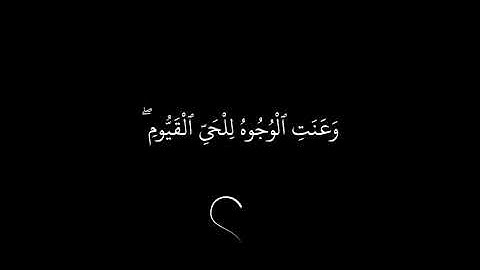 وَعَنَتِ ٱلْوُجُوهُ لِلْحَىِّ ٱلْقَيُّومِ ۖ